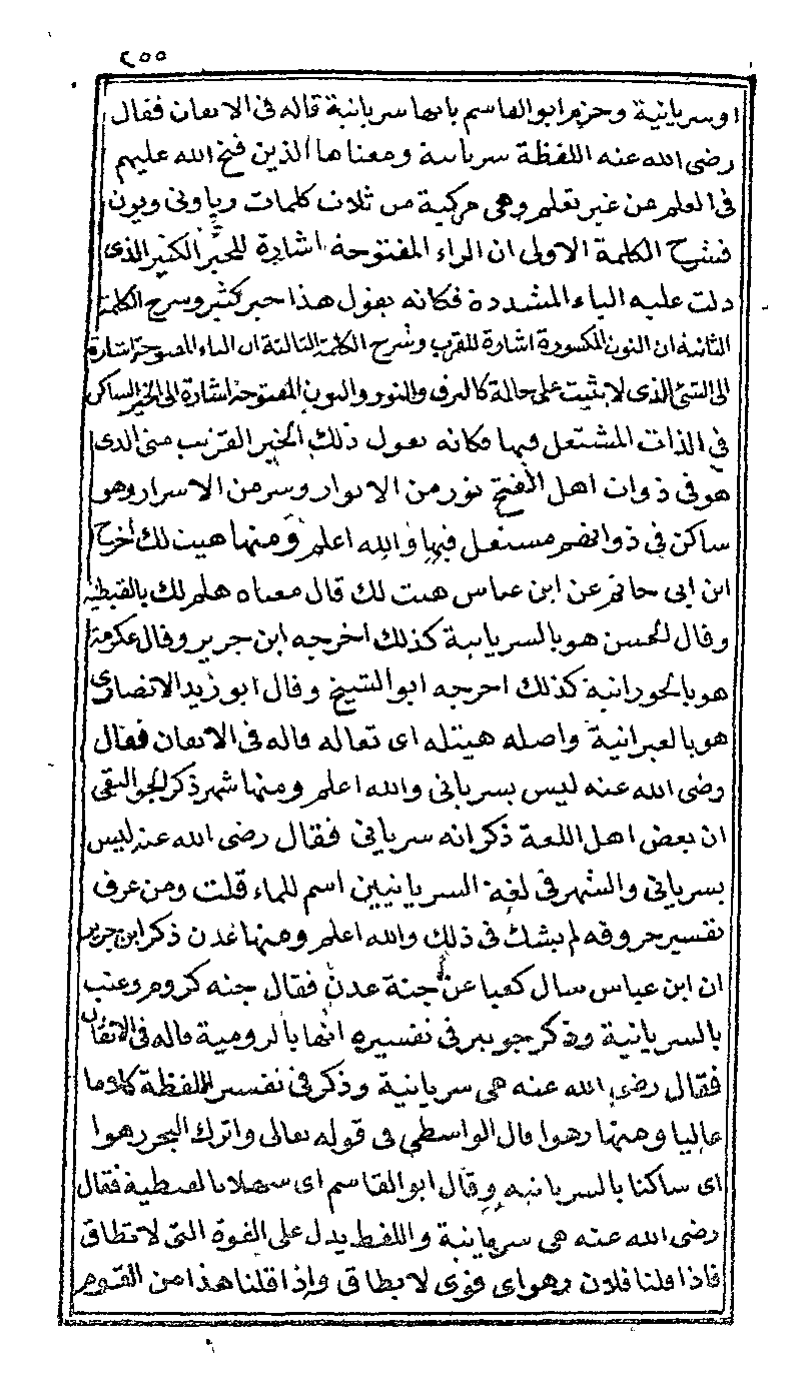 ٢٥٥
او سريانية وجزم ابو القاسم بانها سريانية قاله فى الاتقان فقال
رضى الله عنه اللفظة سريانية ومعناها الذين فتح الله عليهم
فى العلم من غير تعلم وهى مركبة من ثلاث كلمات ربا ونى ويون
فشرح الكلمة الاولى ان الراء المفتوحة اشارة للخير الكثير الذى
دلت عليه الباء المشددة فكانه يقول هذا خير كثير وشرح الكلمة
الثانية ان النون المكسورة اشارة للقرب وشرح الكلمة الثالثة ان الياء المضمومة اشارة
الى الشئ الذى لا يثبت على حالة كالبرق والنور والنون المفتوحة اشارة الى الخير الساكن
فى الذات المشتعل فيها فكانه يقول ذلك الخير القريب منى الذى
هو فى ذوات اهل الفتح نور من الانوار وسر من الاسرار وهو
ساكن فى ذواتهم مشتعل فيها والله اعلم ومنها هيت لك اخرج
ابن ابى حاتم عن ابن عباس هيت لك قال معناه هلم لك بالقبطية
وقال الحسن هو بالسريانية كذلك اخرجه ابن جرير وقال عكرمة
هو بالحورانية كذلك اخرجه ابو الشيخ وقال ابو زيد الانصارى
هو بالعبرانية واصله هيتله اى تعاله قاله فى الاتقان فقال
رضى الله عنه ليس بسريانى والله اعلم ومنها شهر ذكر الجواليقى
ان بعض اهل اللغة ذكر انه سريانى فقال رضى الله عنه ليس
بسريانى والشهر فى لغة السريانيين اسم للماء قلت ومن عرف
تفسير حروفه لم يشك فى ذلك والله اعلم ومنها عدن ذكر ابن جرير
ان ابن عباس سال كعبا عن جنة عدن فقال جنه كروم وعنب
بالسريانية وذكر جويبر فى تفسيره انها بالرومية قاله فى الاتقان
فقال رضى الله عنه هى سريانية وذكر فى تفسير اللفظة كلاما
عاليا ومنها رهوا قال الواسطى فى قوله تعالى واترك البحر رهوا
اى ساكنا بالسريانية وقال ابو القاسم اى سهلا بالقبطية فقال
رضى الله عنه هى سريانية واللفظ يدل على القوة التى لا تطاق
فاذا قلنا فلان رهوا اى قوى لا يطاق واذا قلنا هذا من القوم